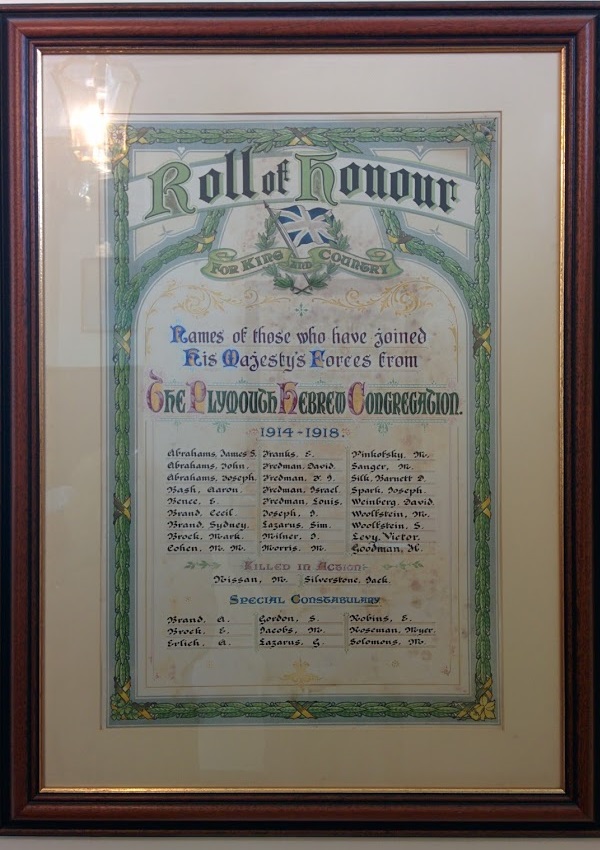 Roll of Honour
FOR KING AND COUNTRY
Names of those who have joined
His Majesty's Forces from
The Plymouth Hebrew Congregation.
1914-1918.
Abrahams, James S. Franks, E. Pinkofsky, M.
Abrahams, John. Fredman, David. Sanger, M.
Abrahams, Joseph. Fredman, J. Silk, Barnett D.
Bash, Aaron. Fredman, Israel. Spark, Joseph.
Bence, E. Fredman, Louis. Weinberg, David.
Brand, Cecil. Joseph, I. Woolfstein, M.
Brand, Sydney. Lazarus, Sim. Woolfstein, S.
Brock, Mark. Milner, I. Levy, Victor.
Cohen, M. M. Morris, M. Goodman, H.
Killed in Action
Nissan, M. Silverstone, Jack.
Special Constabulary
Brand, A. Gordon, S. Robins, E.
Brock, E. Jacobs, M. Roseman, Myer.
Erlich, A. Lazarus, G. Solomons, M.